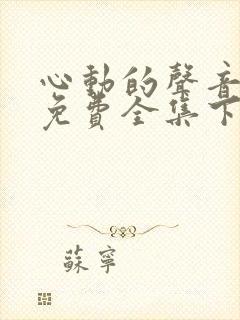 心動的聲音
免費全集下
蘇寧